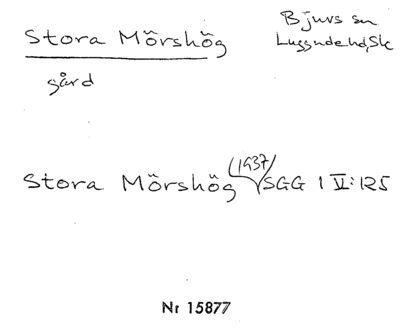 Stora Mörshög
Bjuvs sn
Luggude hd, Sk
gård
Stora Mörshög (1937) SGG 1 V: 125
Nr 15877